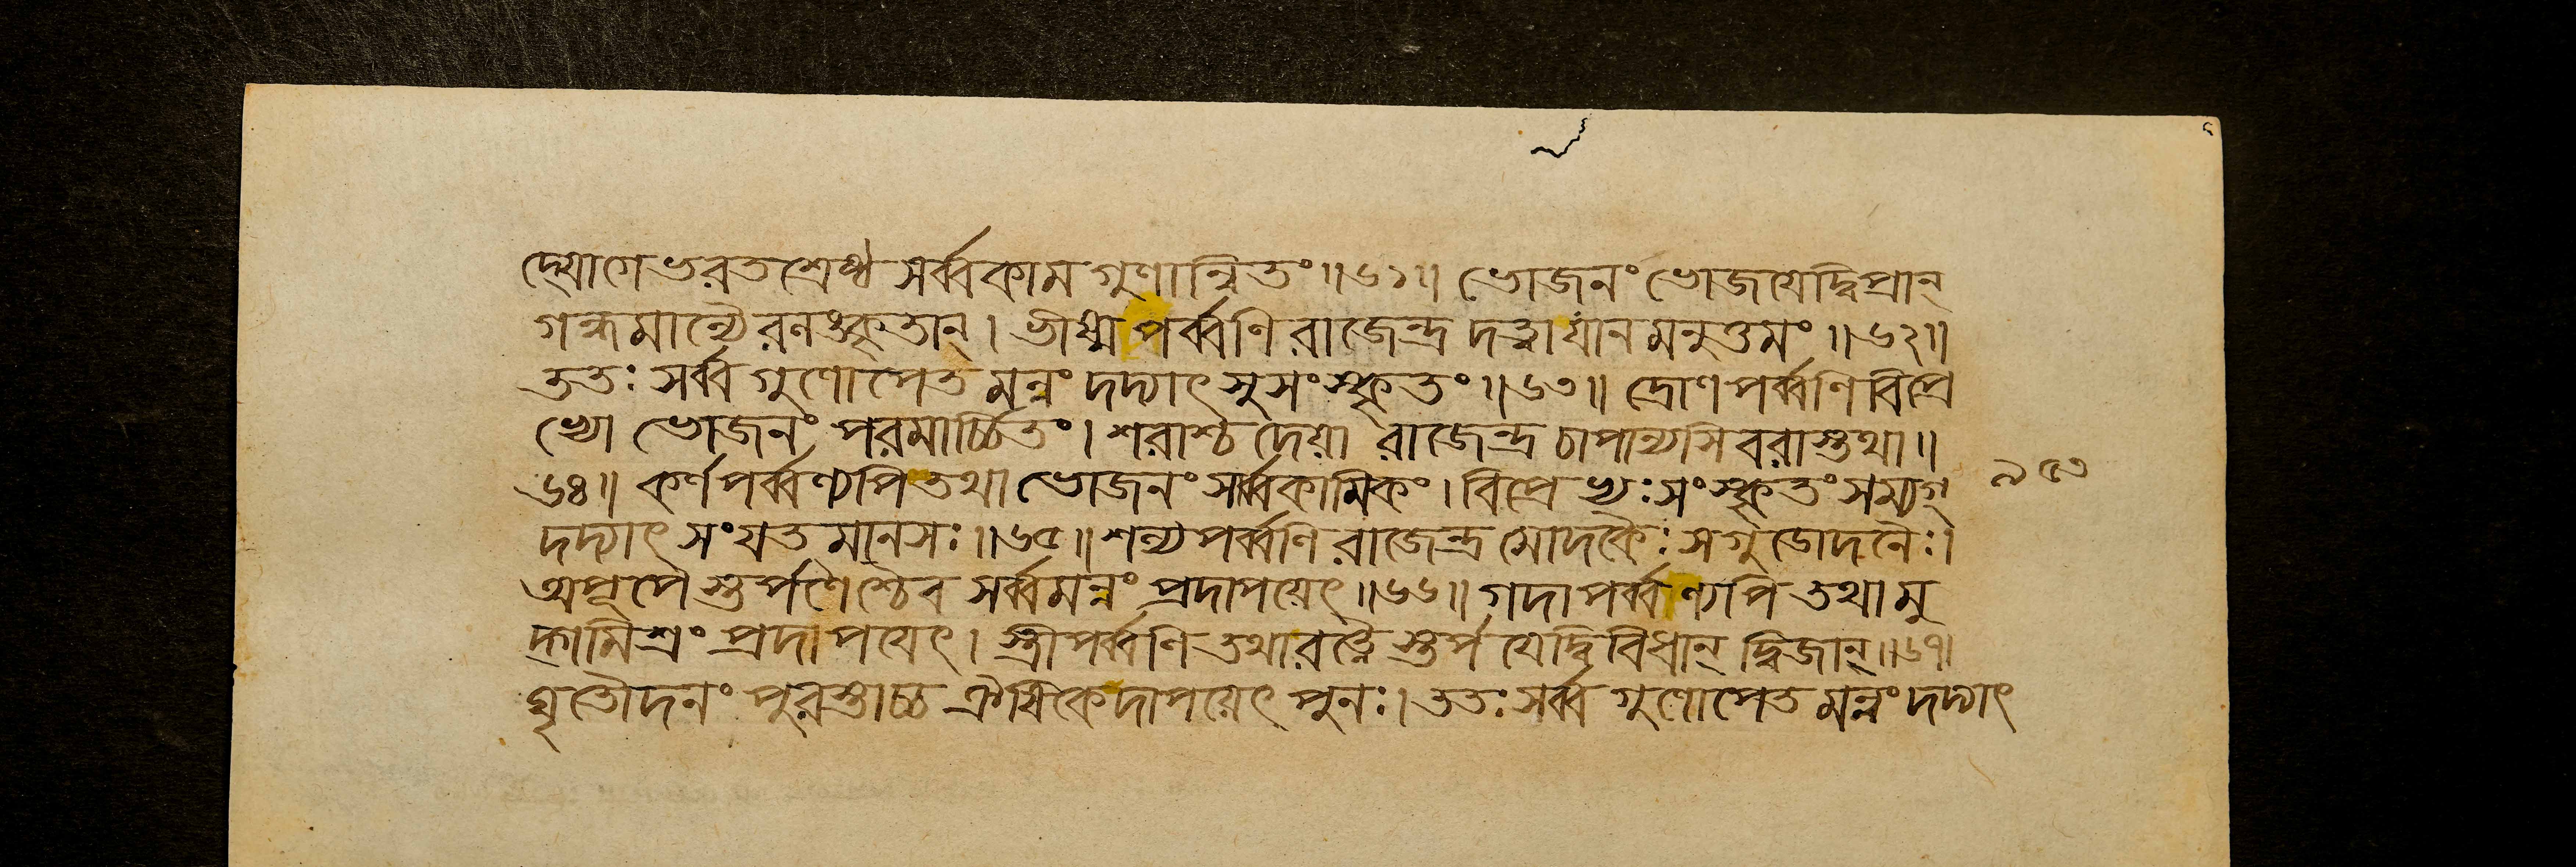 দ্যোগে ভরতশ্রেষ্ঠ সর্ব্বকামগুণান্বিতং ॥৬১॥ ভোজনং ভোজয়েদ্বিপ্রান্
গন্ধমাল্যৈরলঙ্কৃতান্। ভীষ্মপর্ব্বণি রাজেন্দ্র দত্ত্বা যানমনুত্তমং ॥৬২॥
ততঃ সর্ব্বগুণোপেতমন্নং দদ্যাৎ সুসংস্কৃতং ॥৬৩॥ দ্রোণপর্ব্বণি বিপ্রে
ভ্যো ভোজনং পরমার্চ্চিতং। শরাশ্চ দেয়া রাজেন্দ্র চাপান্যসিবরাস্তথা॥
৬৪॥ কর্ণপর্ব্বণ্যপি তথা ভোজনং সর্ব্বকামিকং। বিপ্রেভ্যঃ সংস্কৃতং সম্যগ্
দদ্যাৎ সংযতমানসঃ ॥৬৫॥ শল্যপর্ব্বণি রাজেন্দ্র মোদকৈঃ সগুডোদনৈঃ।
অপূপৈস্তর্পণৈশ্চৈব সর্ব্বমন্নং প্রদাপয়েৎ॥৬৬॥ গদাপর্ব্বণ্যপি তথা মু
দ্গমিশ্রং প্রদাপয়েৎ। স্ত্রীপর্ব্বণি তথা রত্নৈস্তর্পয়েদ্বিবিধান্ দ্বিজান্॥৬৭।
ঘৃতৌদনং পুরস্তাচ্চ ঐষিকে দাপয়েৎ পুনঃ। ততঃ সর্ব্বগুণোপেতমন্নং দদ্যাৎ
৯৫৩